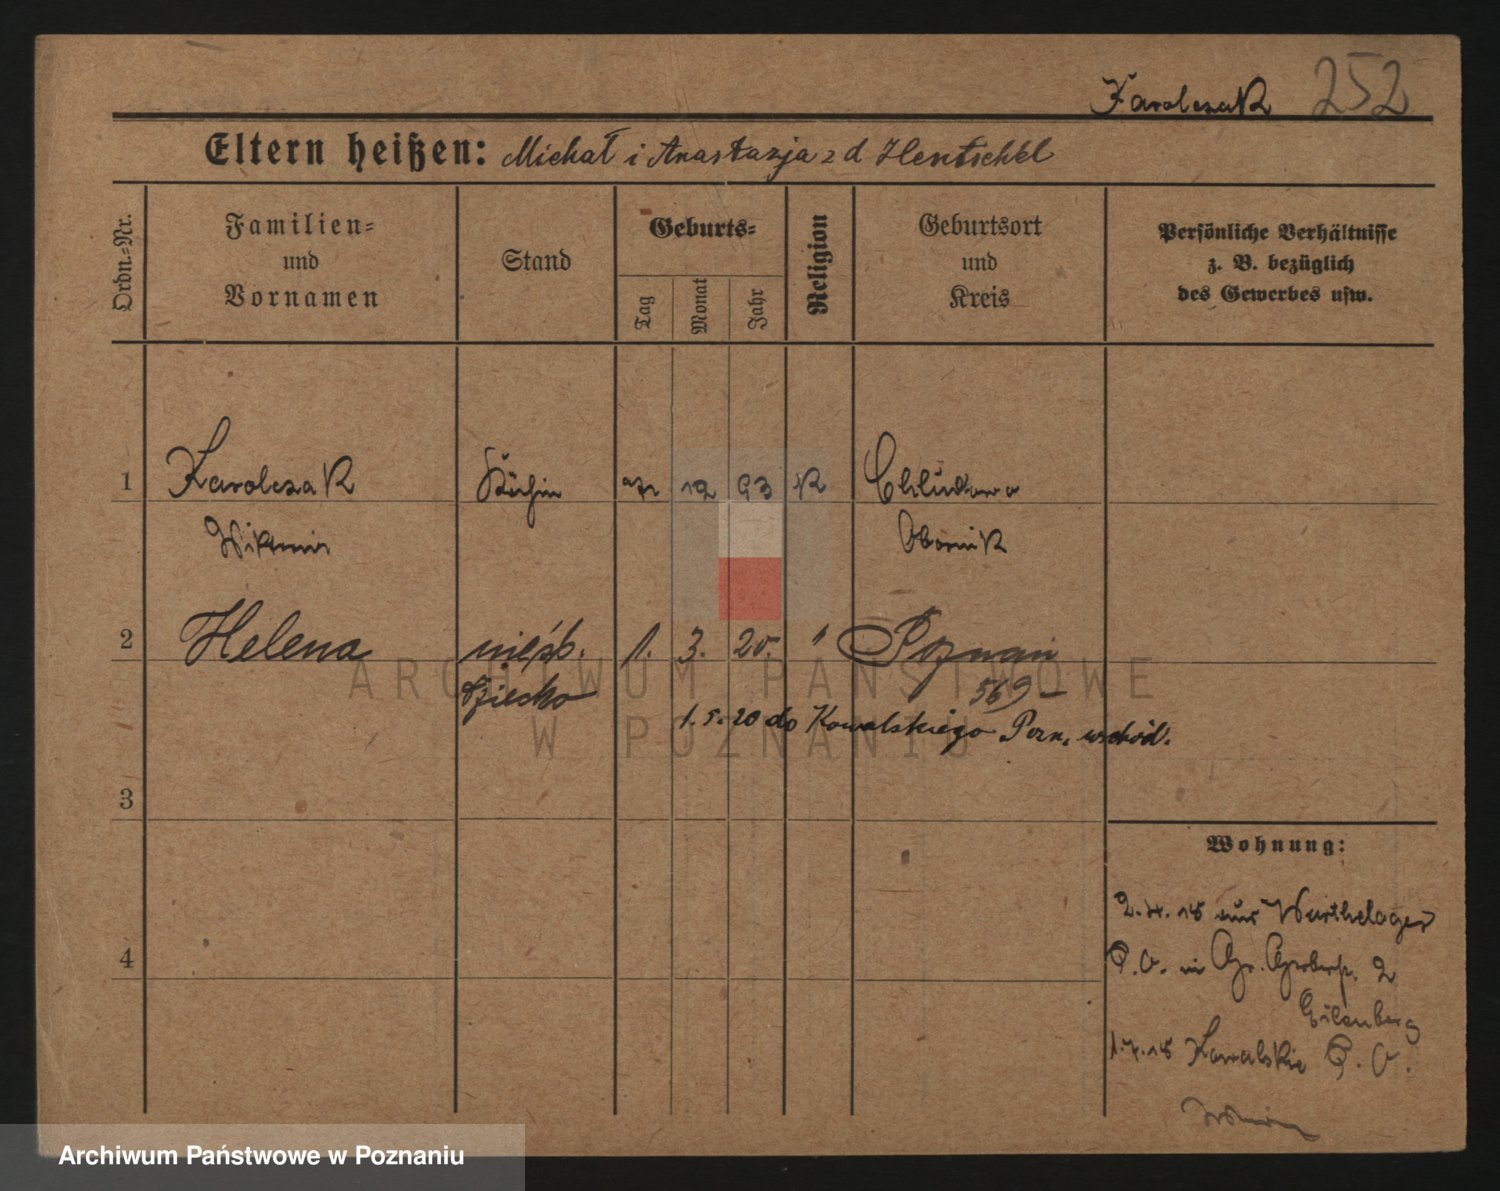 Karolczak 252
Eltern heißen: Michał i Anastazja z d Hentschel
Ordn.=Nr.
Familien=
und
Vornamen
Stand
Geburts=
Tag
Monat
Jahr
Religion
Geburtsort
und
Kreis
Persönliche Verhältnisse
z. B. bezüglich
des Gewerbes usw.
1 Karolczak 12 93 K Chludowo
Obornik
2 Helena nieśb. 1. 3. 20. " Poznań
dziecko 569 –
1.5.20 do Kowalskiego Pozn. wschód.
3
Wohnung:
4
2.4.18 aus Warthelager
P.O. in Gr. 2
Eilenberg
Kowalskie P.O.
ARCHIWUM PAŃSTWOWE
W POZNANIU
Archiwum Państwowe w Poznaniu